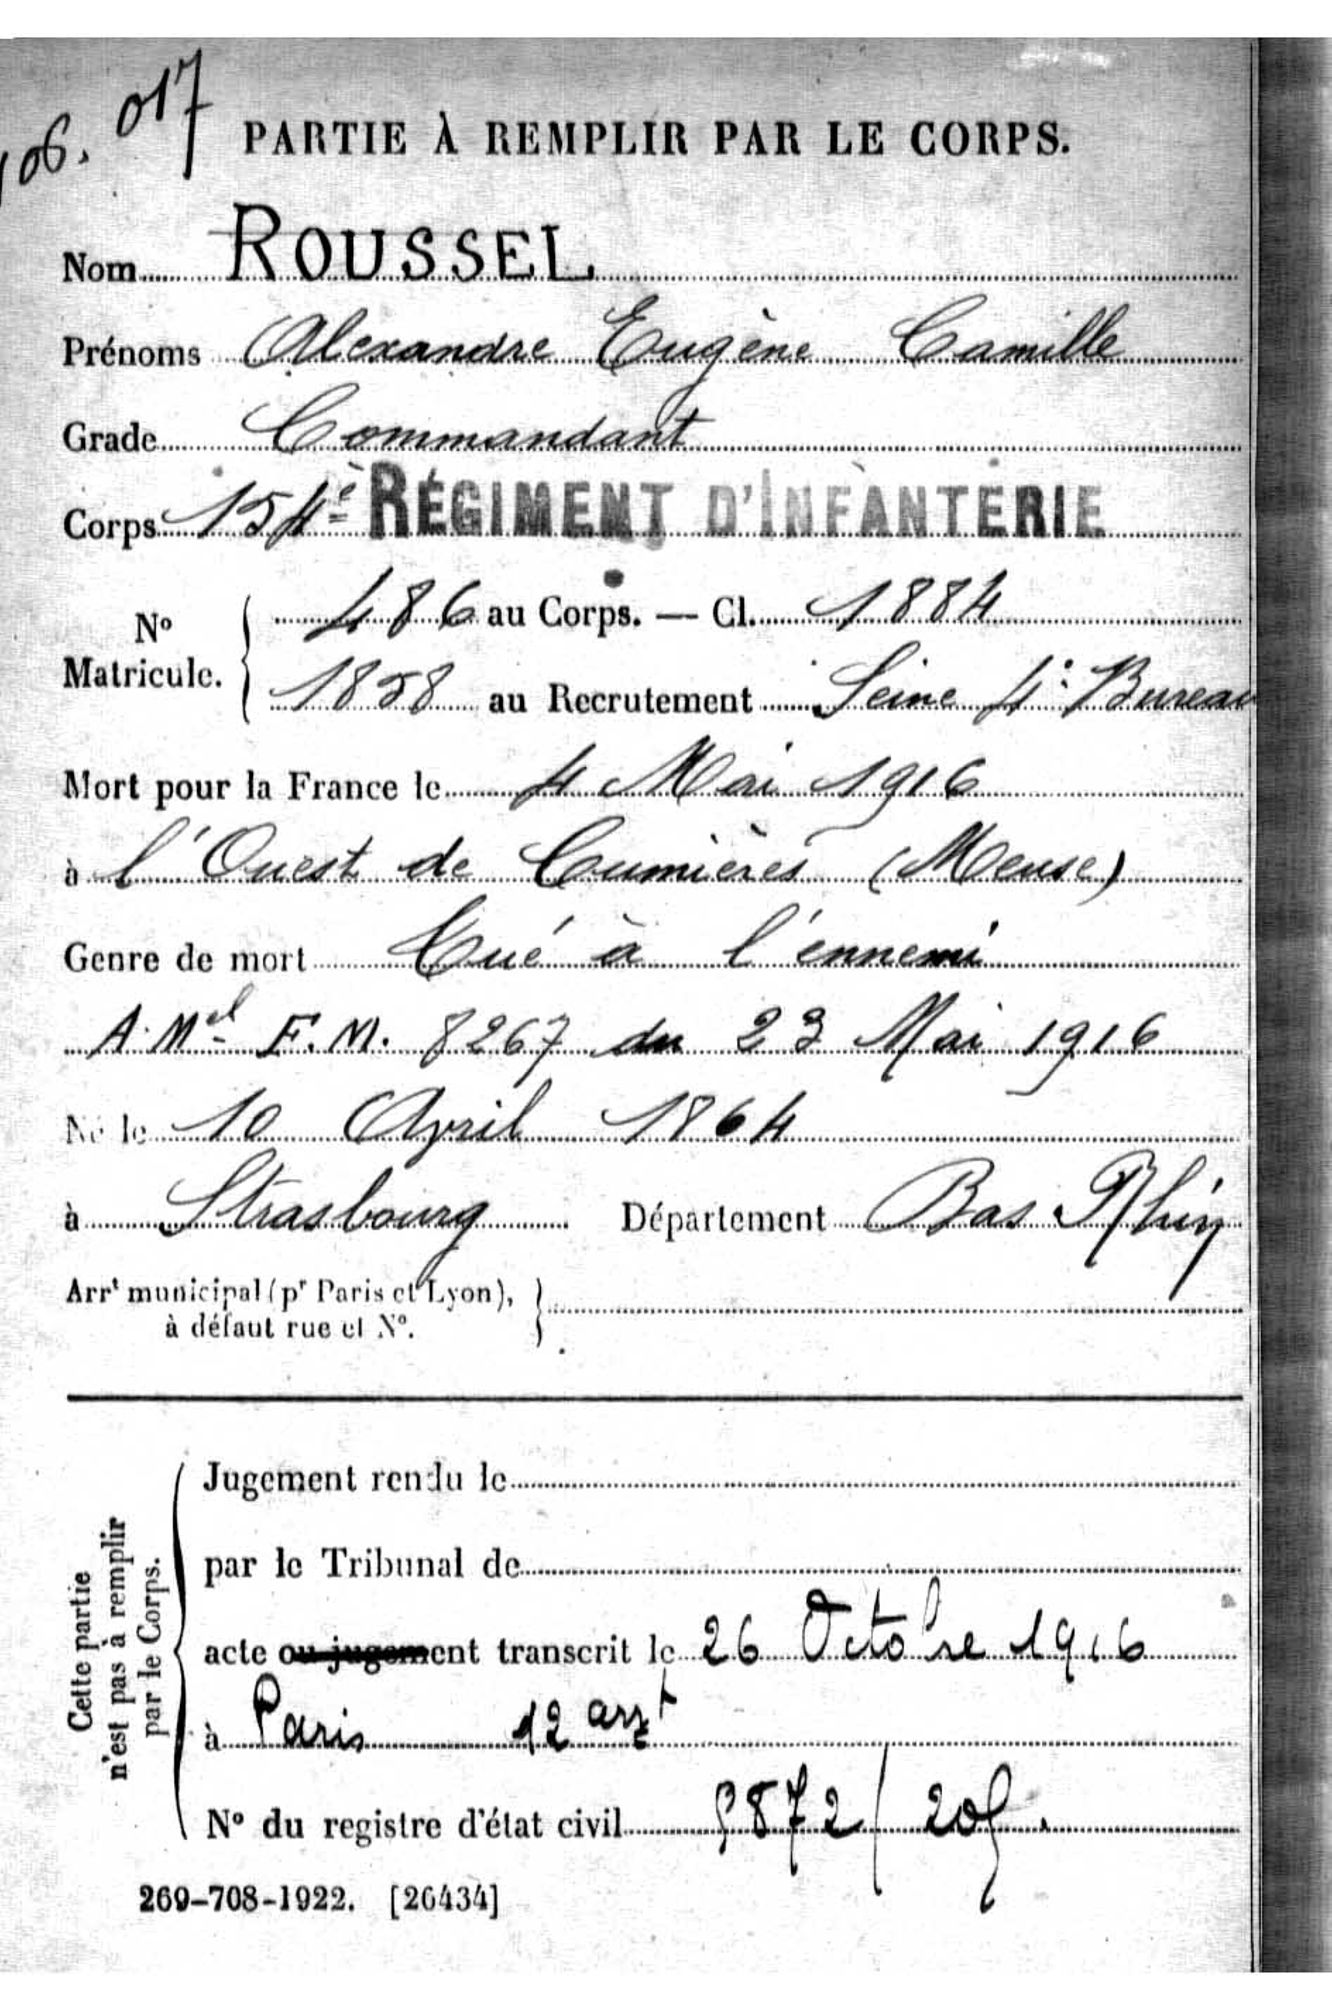 106.017
PARTIE À REMPLIR PAR LE CORPS.
Nom ROUSSEL
Prénoms Alexandre Eugène Camille
Grade Commandant
Corps 154e RÉGIMENT D'INFANTERIE
No Matricule. 486 au Corps. — Cl. 1884
1858 au Recrutement Seine 4e Bureau
Mort pour la France le 4 Mai 1916
à l'Ouest de Cumières (Meuse)
Genre de mort Tué à l'ennemi
A. Mel F.M. 8267 du 23 Mai 1916
Né le 10 Avril 1864
à Strasbourg Département Bas Rhin
Arrt municipal (pr Paris et Lyon),
à défaut rue et No.
Cette partie
n'est pas à remplir
par le Corps.
Jugement rendu le
par le Tribunal de
acte ou jugement transcrit le 26 Octobre 1916
à Paris 12 arrt
No du registre d'état civil
269-708-1922. [26434]